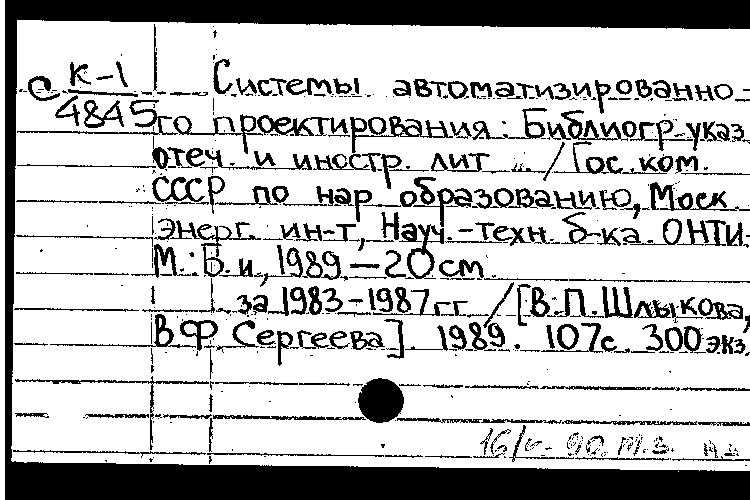 С К-1
4845
Системы автоматизированно-
го проектирования: Библиогр. указ.
отеч. и иностр. лит ... / Гос. ком.
СССР по нар образованию, Моск.
энерг. ин-т, Науч.-техн. б-ка. ОНТИ.-
М.: Б.и, 1989.—20см.
за 1983-1987гг / [В.П.Шлыкова,
В Ф Сергеева]. 1989. 107с. 300экз.
90